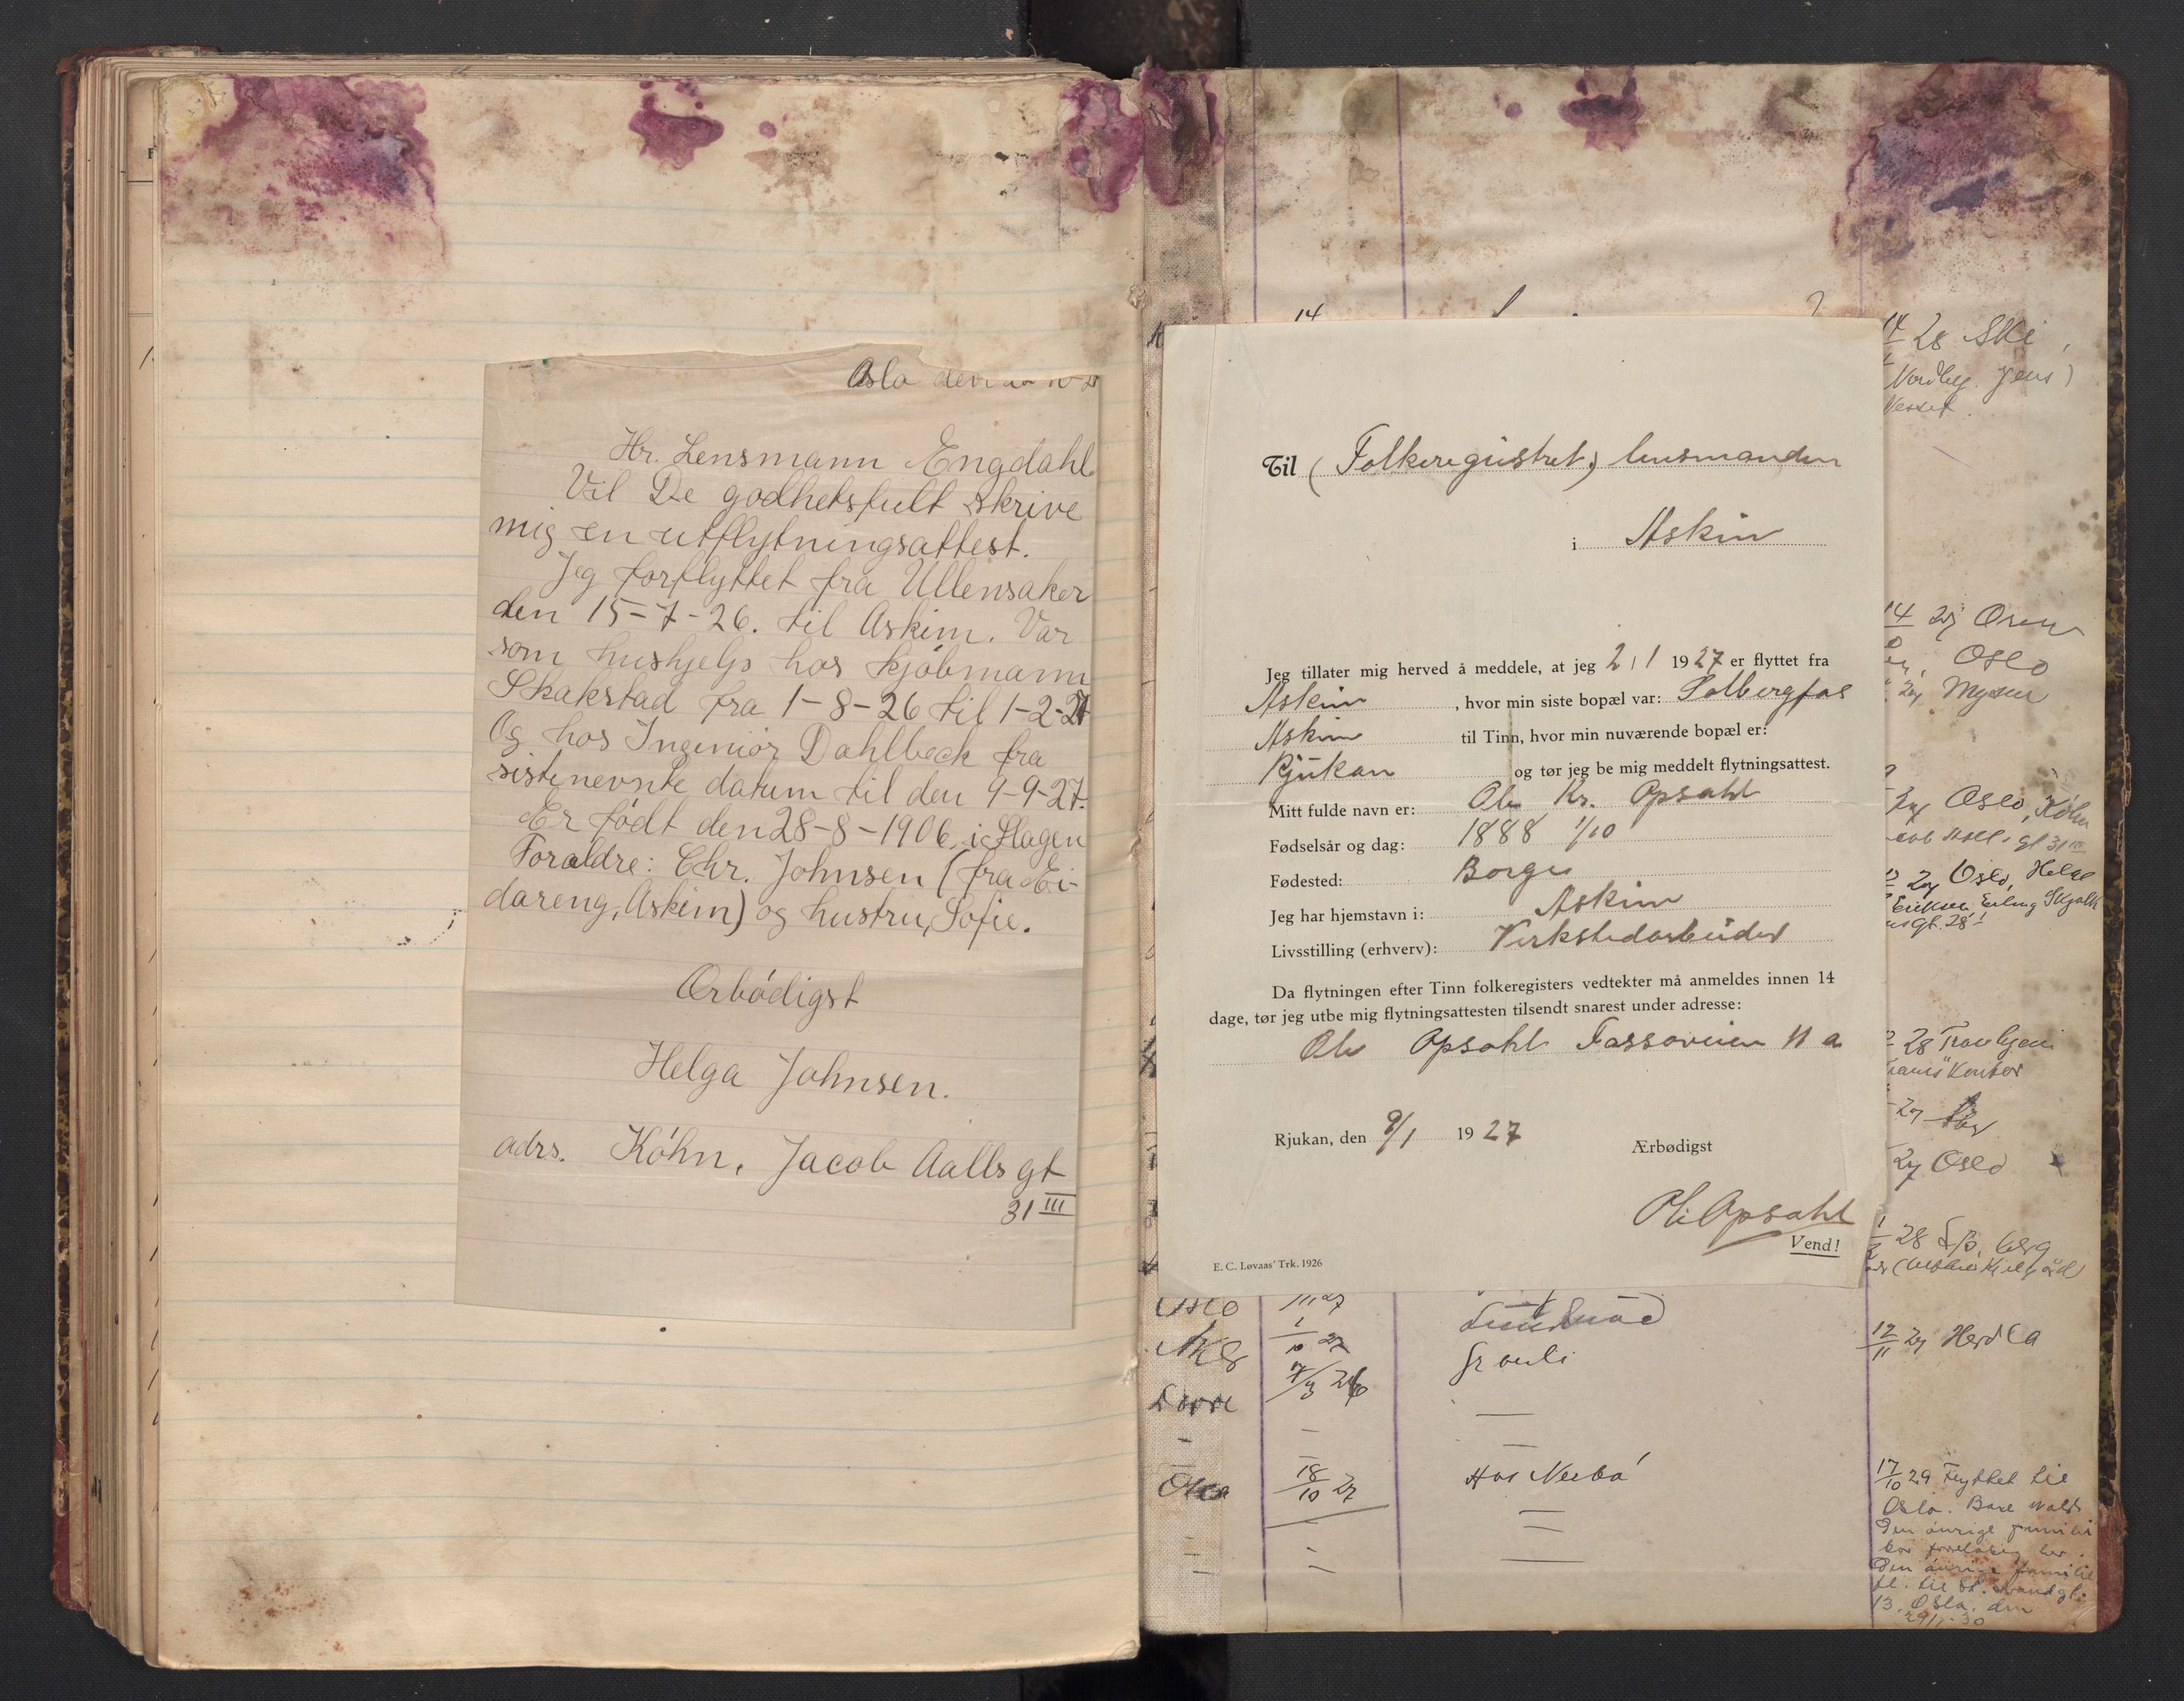 Oslo den
Hr. Lensmann Engdahl.
Vil De godhetsfult skrive
mig en utflytningsattest.
Jeg forflyttet fra Ullensaker
den 15-7-26. til Askim. Var
som hushjelp hos kjöbmann
Skakstad fra 1-8-26 til 1-2-27
Og hos Ingeniör Dahlbeck fra
sistenevnte datum til den 9-9-27.
Er födt den 28-8-1906. i Slagen
Foraldre: Chr. Johnsen (fra Ei-
dareng, Askim) og hustru, Sofie.
Ærbödigst
Helga Johnsen.
adrs. Köhn, Jacob Aalls gt
31 III
14
Til (Folkeregistret,) lensmanden
i Askim
Jeg tillater mig herved å meddele, at jeg 2/1 1927 er flyttet fra
Askim , hvor min siste bopæl var: Solbergfos
Askim til Tinn, hvor min nuværende bopæl er:
Rjukan og tør jeg be mig meddelt flytningsattest.
Mitt fulde navn er: Ole Kr. Opsahl
Fødselsår og dag: 1888 1/10
Fødested: Borge
Jeg har hjemstavn i: Askim
Livsstilling (erhverv): Verkstedarbeider
Da flytningen efter Tinn folkeregisters vedtekter må anmeldes innen 14
dage, tør jeg utbe mig flytningsattesten tilsendt snarest under adresse:
Ole Opsahl Tassoveien 11 a
Rjukan, den 9/1 1927
Ærbødigst
Ole Opsahl
Vend!
E. C. Løvaas' Trk. 1926
28 Ski
Nordby. Jens)
14 27 Oren
Oslo
27 Mysen
27 Oslo, Köhn
gt 31 III
27 Oslo, Helge
Eriksen Erling Skjalk
gt. 28
28
Kontor
27
27 Oslo
28
12/11 27 Herdla
Oslo 27
1/10 27 Grauli
26
Oslo 18/10 27 Hos Neebö
17/10 29 Flyttet til
Oslo. Bare
Den övrige familie
bor foreløbig her.
Den övrige familie
fl. til St.
13, Oslo. den
30